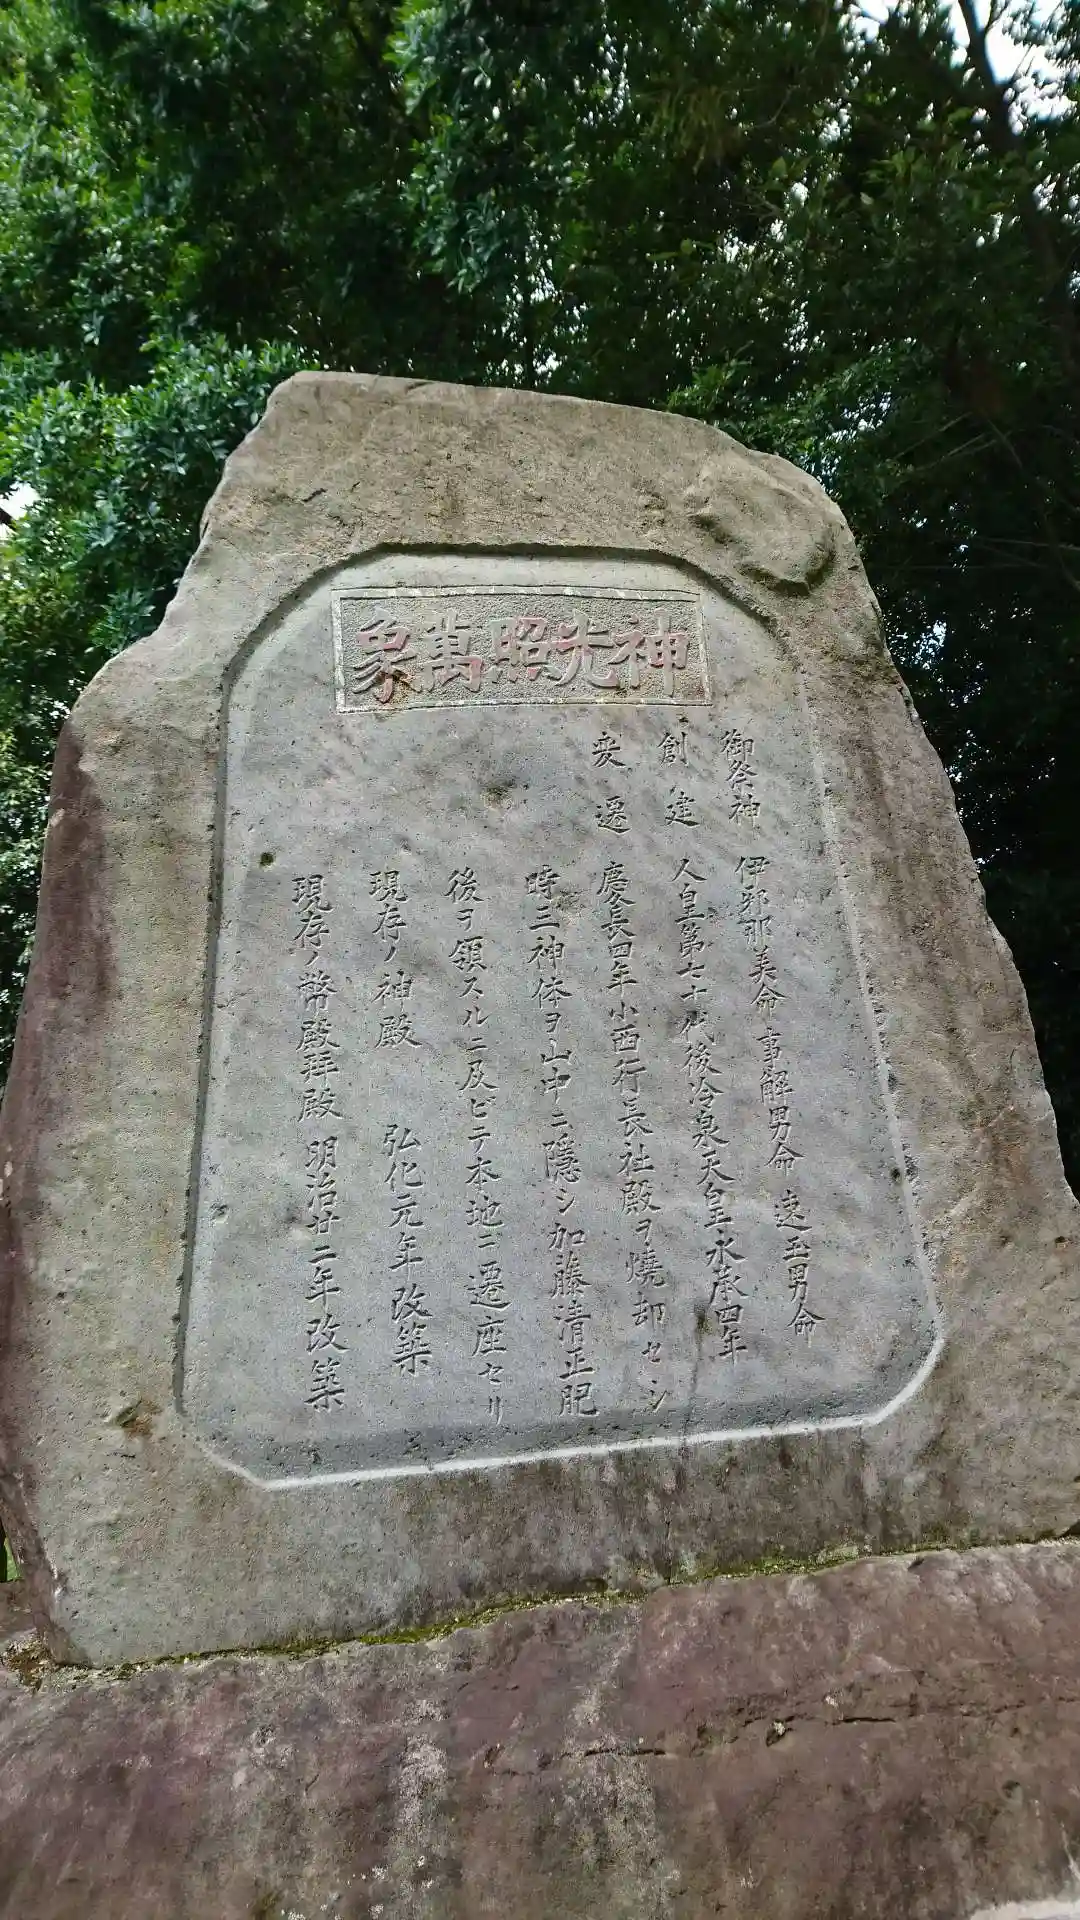 神光照萬象
御祭神 伊邪那美命 事解男命 速玉男命
創建 人皇第七十代後冷泉天皇永承四年
変遷 慶長四年小西行長社殿ヲ燒却セシ
時三神体ヲ山中ニ隱シ加藤清正肥
後ヲ領スルニ及ビテ本地ニ遷座セリ
現存ノ神殿 弘化元年改築
現存ノ幣殿拜殿 明治廿二年改築